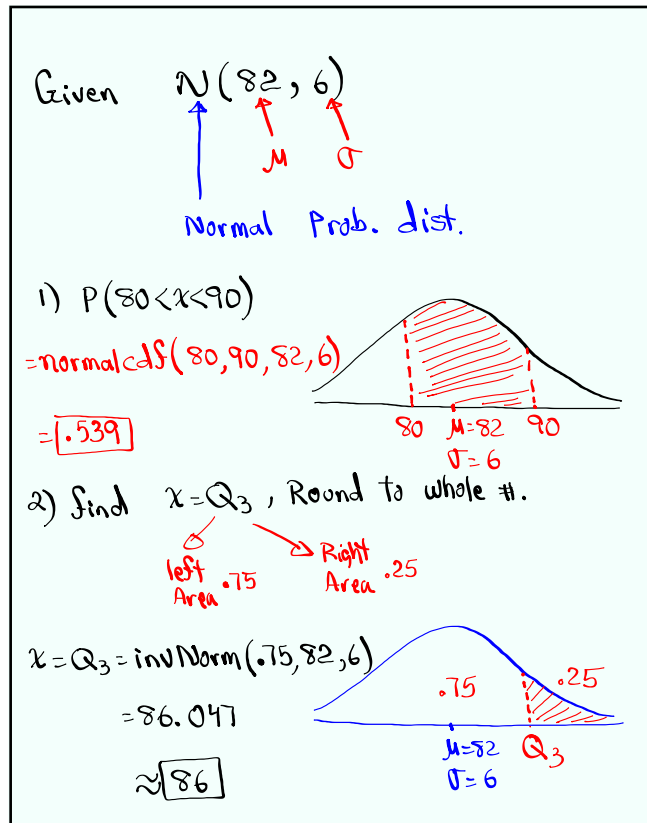 Given N(82, 6)
μ σ
Normal Prob. dist.
1) P(80<x<90)
=normalcdf(80,90,82,6)
= .539
80 μ=82 90
σ=6
2) find x=Q₃, Round to whole #.
left Area .75
Right Area .25
x=Q₃=invNorm(.75,82,6)
=86.047
≈ 86
.75 .25
μ=82 Q₃
σ=6